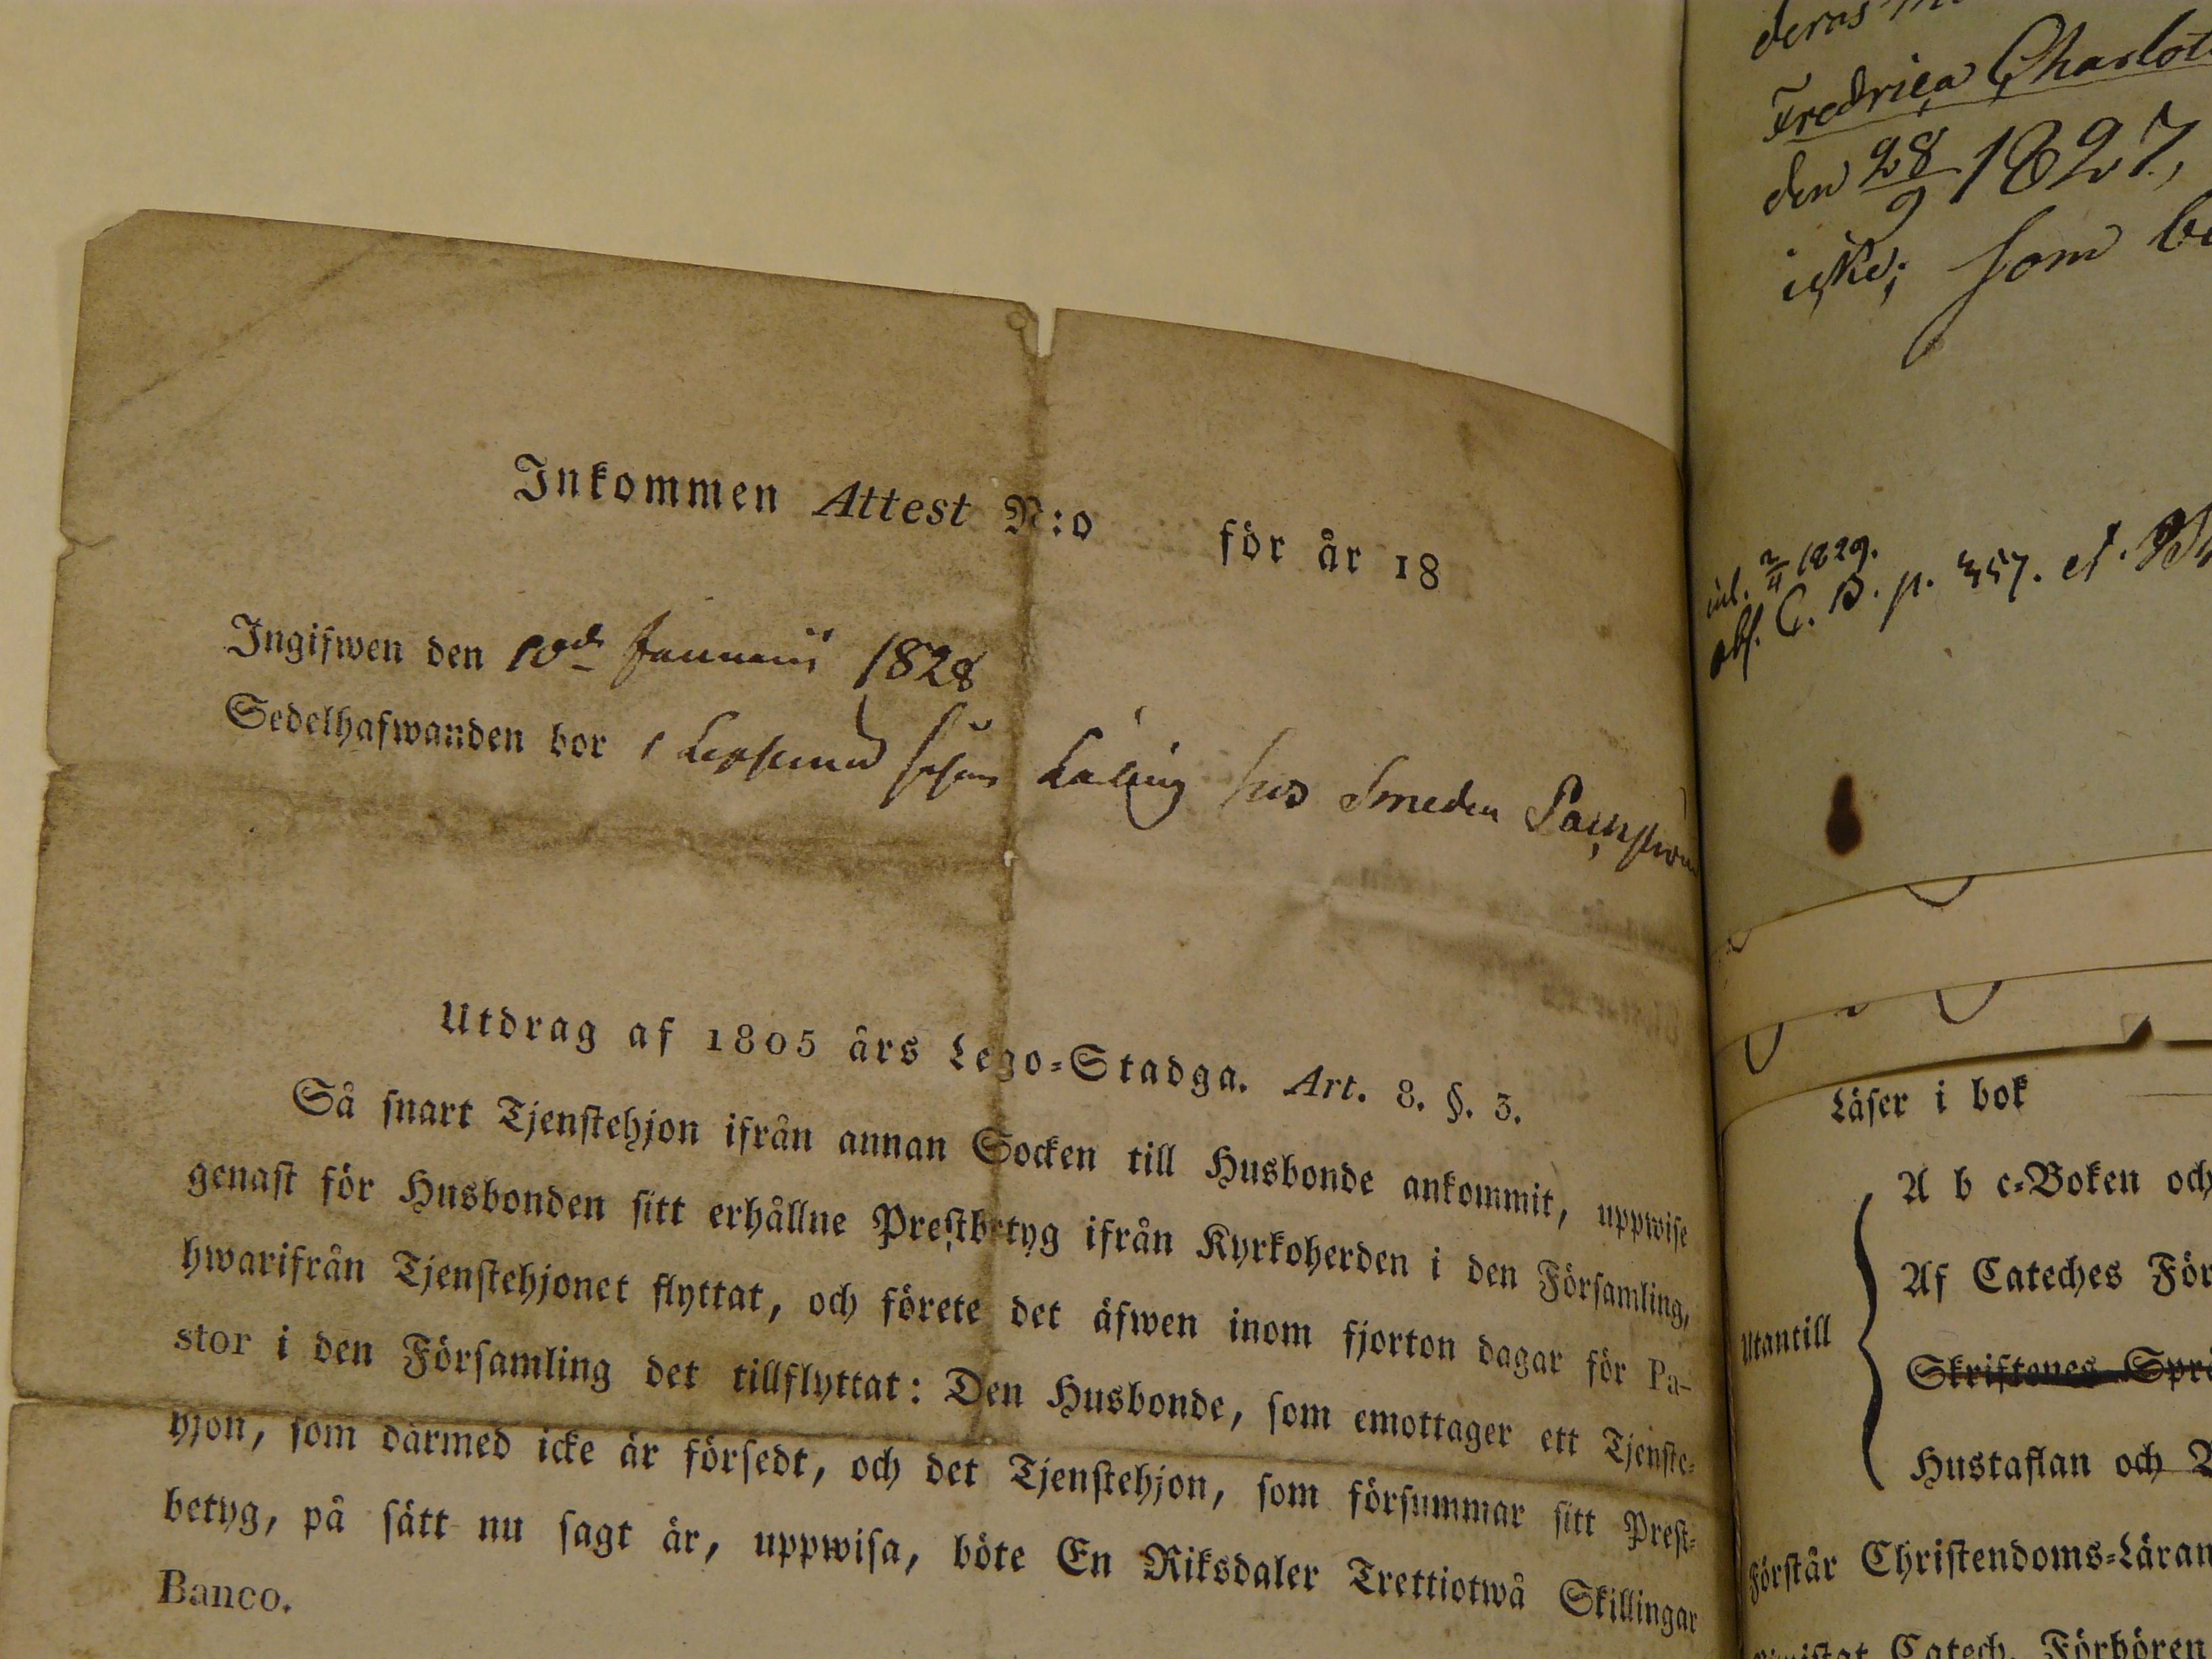 Inkommen Attest N:o för år 18
Ingifwen den 10de Januarii 1828
Sedelhafwanden bor i hos Smeden
Utdrag af 1805 års Lego-Stadga. Art. 8. §. 3.
Så snart Tjenstehjon ifrån annan Socken till Husbonde ankommit, uppwise
genast för Husbonden sitt erhållne Prestbetyg ifrån Kyrkoherden i den Församling,
hwarifrån Tjenstehjonet flyttat, och förete det äfwen inom fjorton dagar för Pa-
stor i den Församling det tillflyttat: Den Husbonde, som emottager ett Tjenste-
hjon, som därmed icke är försedt, och det Tjenstehjon, som försummar sitt Prest-
betyg, på sätt nu sagt är, uppwisa, böte En Riksdaler Trettiotwå Skillingar
Banco.
deras
Fredrica Charlot
den 28/9 1827,
icke; som be
inl. 2/4 1829.
abs. C. B. p. 357. et.
Läser i bok
A b c-Boken och
Af Cateches För
Utantill
Skriftenes Språ
Hustaflan och
Förstår Christendoms-Läran
Catech. Förhören